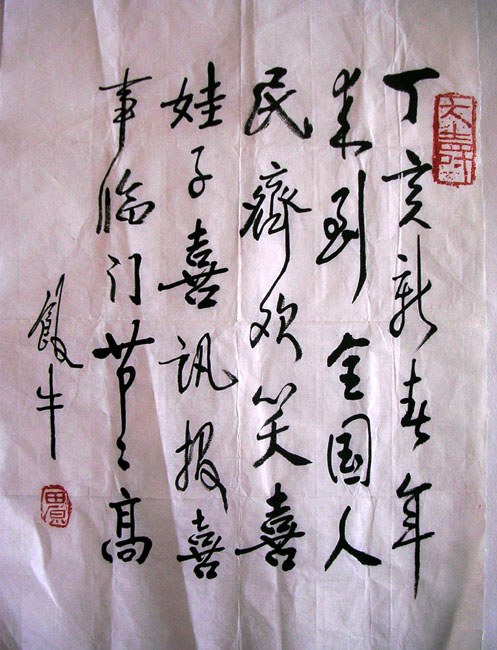 丁亥新春年
来到全国人
民齊欢笑喜
娃子喜訊报喜
事临门节々高
飯牛
田原